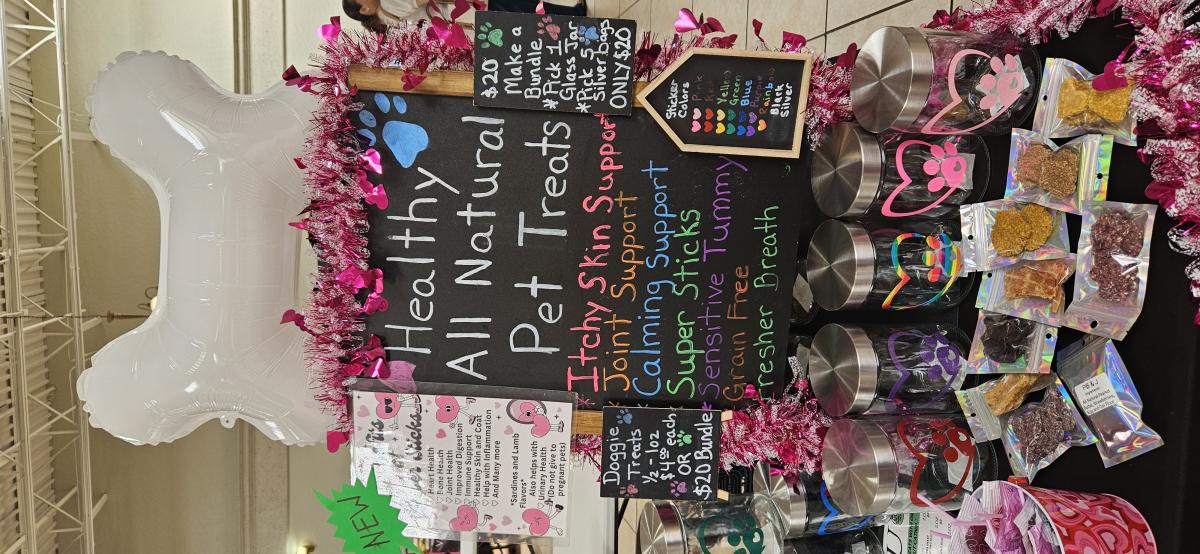 $20
Make a
Bundle
*Pick 1
Glass Jar
*Pick 5
Silver bags
ONLY $20
Sticker
Colors
Pink
Red
Yellow
Green
Blue
Purple
Rainbow
Black
Silver
Healthy
All Natural
Pet Treats
Itchy Skin Support
Joint Support
Calming Support
Super Sticks
Sensitive Tummy
Grain Free
Fresher Breath
Heart Health
Bone Health
Joint Health
Improved Digestion
Immune Support
Healthy Skin and Coat
Help with Inflammation
And Many more
*Sardines and Lamb
Flavors*
Also helps with
Urinary Health
(Do not give to
pregnant pets)
NEW
Doggie
Treats
½-1oz
$4.00 each
OR
$20 Bundle
PB & J